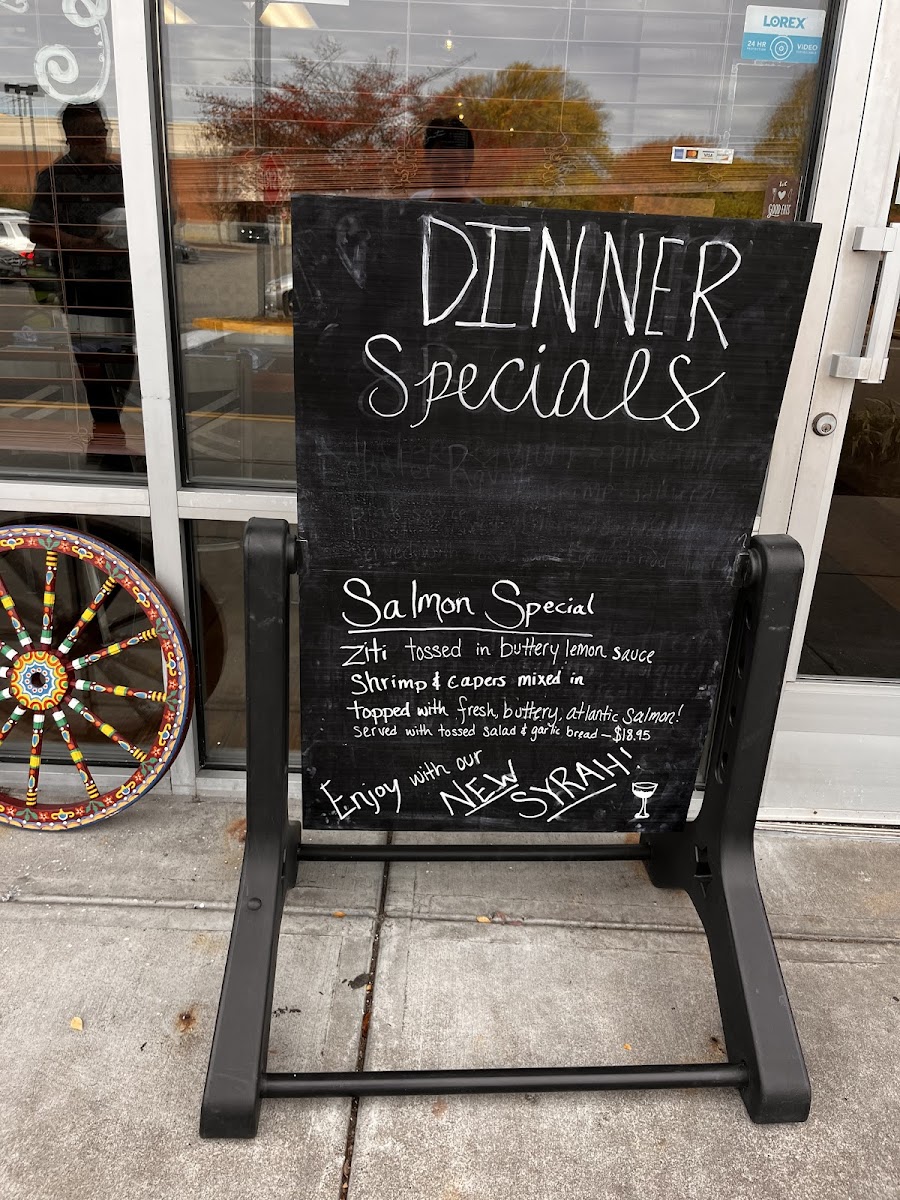 LOREX
24 HR
VIDEO
VISA
GOOD EATS
DINNER
Specials
Salmon Special
Ziti tossed in buttery lemon sauce
Shrimp & capers mixed in
topped with fresh, buttery, atlantic salmon!
Served with tossed salad & garlic bread — $18.95
Enjoy with our
NEW SYRAH!